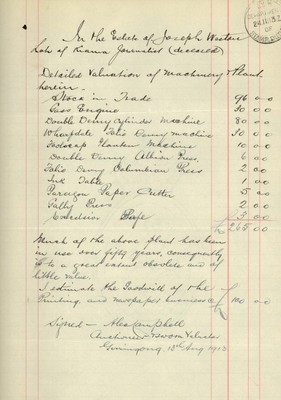 In the Estate of Joseph Weston
late of Kiama Journalist (deceased)
Detailed Valuation of Machinery & Plant
herein.
Stock in Trade 96 0 0
Gas Engine 30 0 0
Double Demy Cylinder Machine 80 0 0
Wharfdale Folio Demy Machine 30 0 0
Foolscap Platen Machine 10 0 0
Double Demy Albion Press. 6 0 0
Folio Demy Columbian Press 2 0 0
Ink Table 1 0 0
Paragon Paper Cutter 5 0 0
Galley Press 2 0 0
Excelsior Safe 3 0 0
£ 265 0 0
Much of the above Plant has been
in use over fifty years, consequently
is to a great extent obsolete and of
little value.
I estimate the Goodwill of the
Printing, and newspaper business £ 100 0 0
Signed - Alex Campbell
Auctioneer & Valuator
Gerringong, 15th Aug 1913